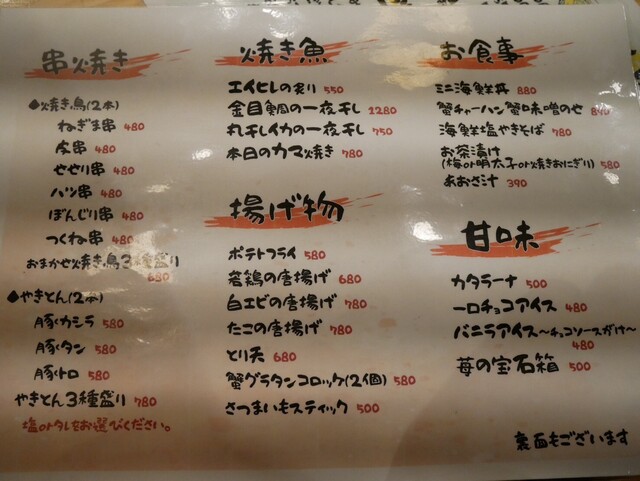 串焼き
◆焼き鳥(2本)
ねぎま串 480
皮串 480
せせり串 480
ハツ串 480
ぼんじり串 480
つくね串 480
おまかせ焼き鳥3種盛り
680
◆やきとん(2本)
豚カシラ 580
豚タン 580
豚トロ 580
やきとん3種盛り 780
塩orタレをお選びください。
焼き魚
エイヒレの炙り 550
金目鯛の一夜干し 1280
丸干しイカの一夜干し 750
本日のカマ焼き 780
揚げ物
ポテトフライ 580
若鶏の唐揚げ 680
白エビの唐揚げ 780
たこの唐揚げ 780
とり天 680
蟹グラタンコロッケ(2個) 580
さつまいもスティック 500
お食事
ミニ海鮮丼 880
蟹チャーハン蟹味噌のせ
海鮮塩やきそば 780
お茶漬け
(梅or明太子or焼きおにぎり) 580
あおさ汁 390
甘味
カタラーナ 500
一口チョコアイス 480
バニラアイス〜チョコソースがけ〜
480
苺の宝石箱 500
裏面もございます